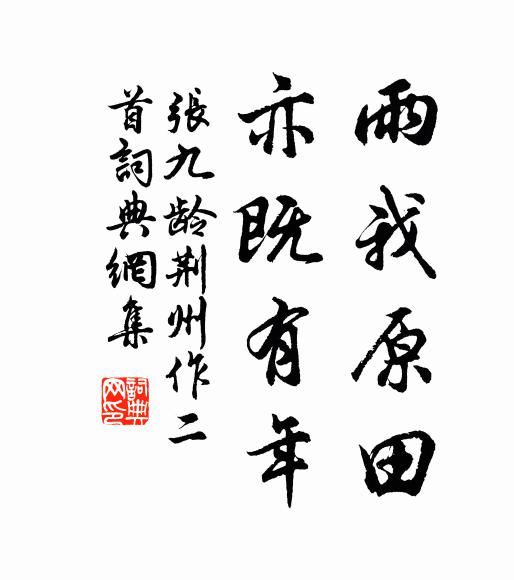 雨我原田
亦既有年
張九龄荆州作二
首詞典網集
詞典
网印